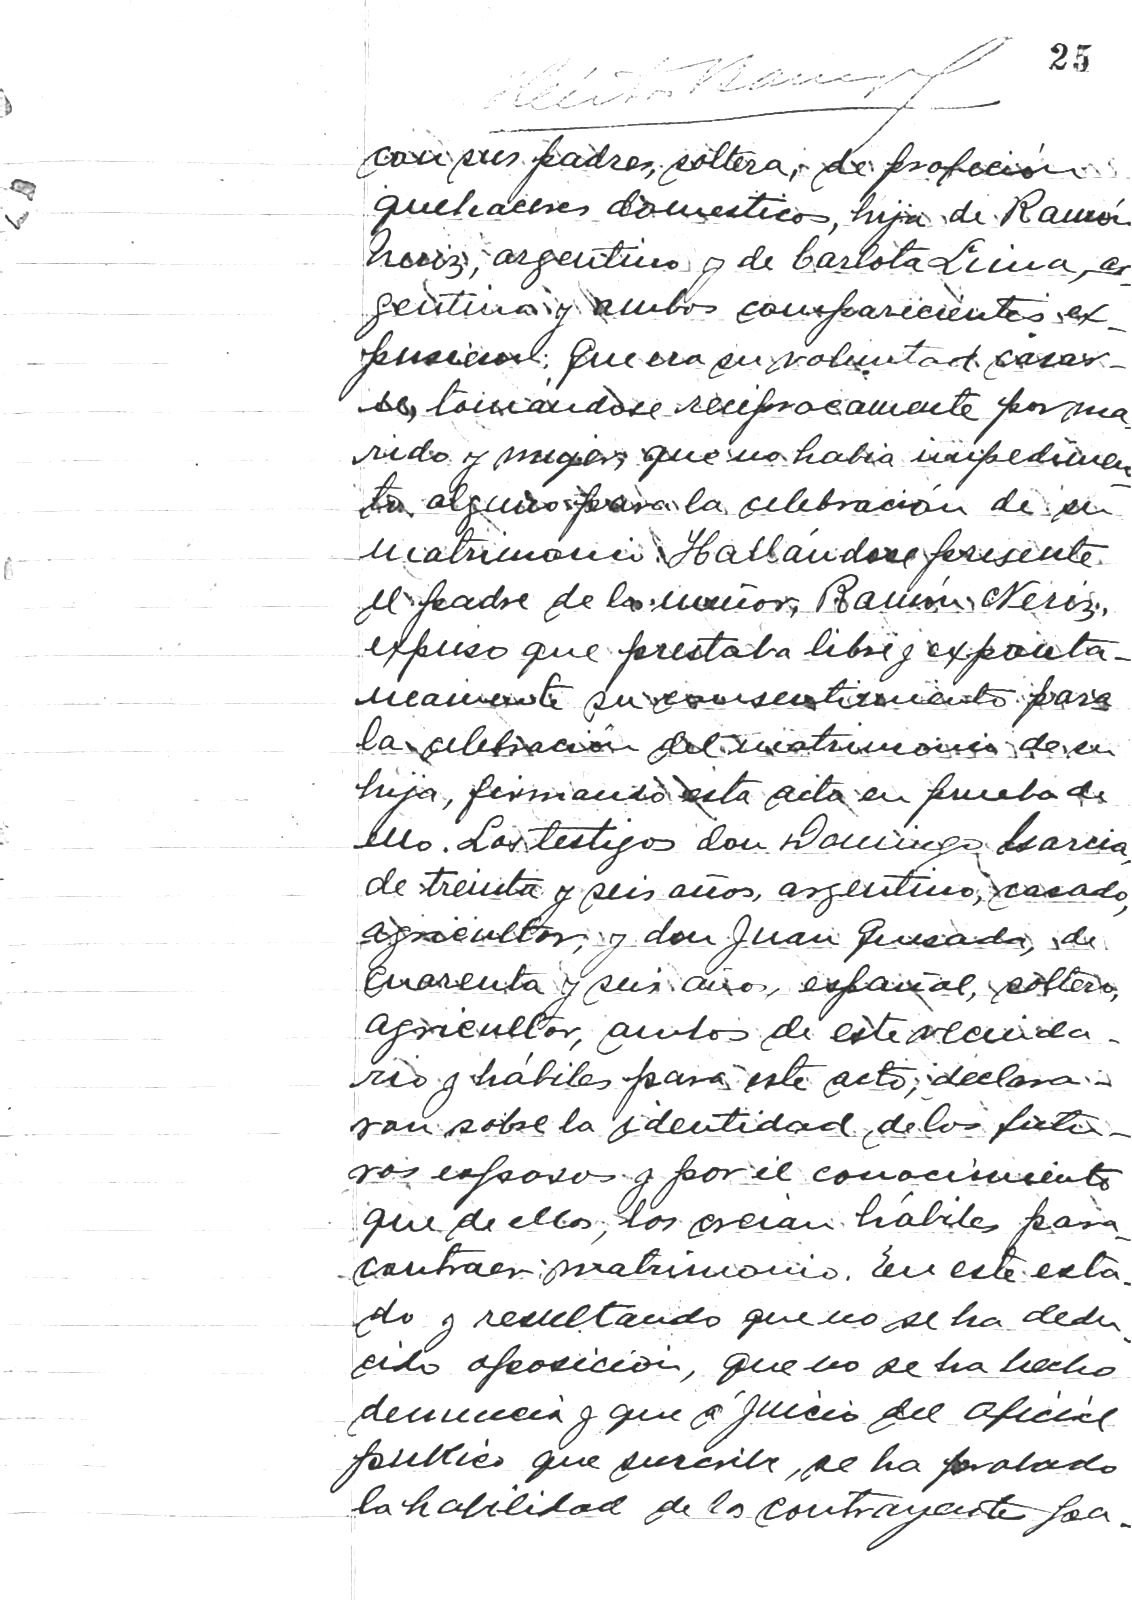 25
con sus padres, soltera, de profeción
quehaceres domesticos, hija de Ramón
Neriz, argentino y de Carlota Luna, ar-
gentina y ambos comparecientes ex-
pusieron: Que era su voluntad casar-
se, tomándose recíprocamente por ma-
rido y mujer, que no habia impedimen-
to alguno para la celebración de su
matrimonio. Hallándose presente
el padre de la menor, Ramón Neriz,
expuso que prestaba libre y exponta-
neamente su consentimiento para
la celebración del matrimonio de su
hija, firmando esta acta en prueba de
ello. Los testigos don Domingo Garcia,
de treinta y seis años, argentino, casado,
agricultor, y don Juan Quesada, de
cuarenta y seis años, español, soltero,
agricultor, ambos de este vecinda-
rio y hábiles para este acto, declara-
ron sobre la identidad de los futu-
ros esposos y por el conocimiento
que de ellos, los creian hábiles para
contraer matrimonio. En este esta-
do y resultando que no se ha dedu-
cido oposicion, que no se ha hecho
denuncia y que á juicio del oficial
publico que suscribe, se ha probado
la habilidad de los contrayente pa-